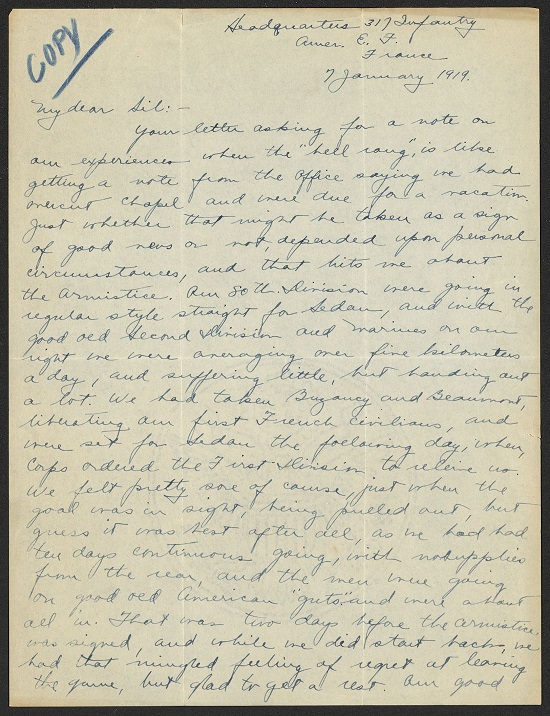 COPY
Headquarters 317 Infantry
Amer. E. F.
France
7 January 1919.
My dear Sil:-
Your letter asking for a note on
our experiences when the "bell rang", is like
getting a note from the Office saying we had
overcut chapel and were due for a vacation.
Just whether that might be taken as a sign
of good news or not, depended upon personal
circumstances, and that hits me about
the armistice. Our 80th Division were going in
regular style straight for Sedan, and with the
good old Second Division and Marines on our
right we were averaging over five kilometers
a day, and suffering little, but handing out
a lot. We had taken Buzancy and Beaumont,
liberating our first French civilians, and
were set for Sedan the following day, when,
Corps ordered the First Division to relieve us.
We felt pretty sore of course, just when the
goal was in sight, being pulled out, but
guess it was best after all, as we had had
ten days continuous going, with no supplies
from the rear, and the men were going
on good old American "guts", and were about
all in. That was two days before the armistice
was signed, and while we did start back, we
had that mingled feeling of regret at leaving
the game, but glad to get a rest. Our good